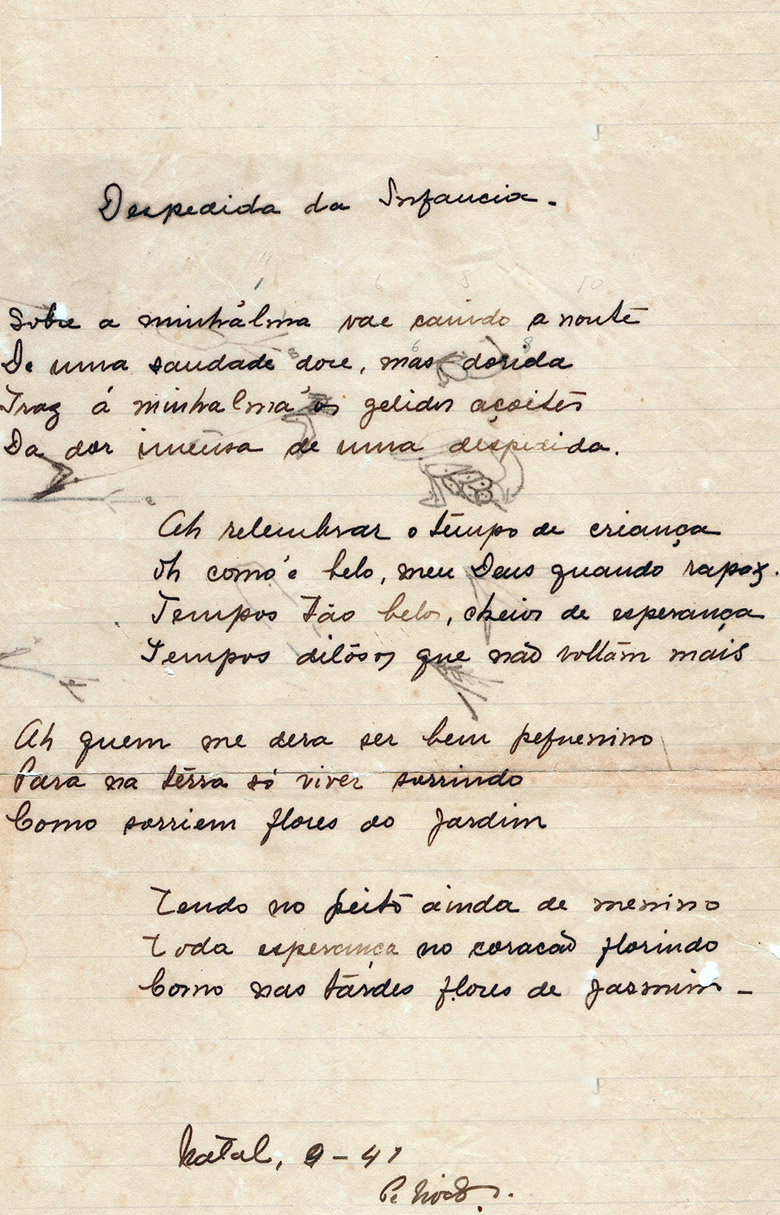 Despedida da Infancia.
Sobre a minh'álma vae caindo a noute
De uma saudade doce, mas dorida
Traz á minha'lma os gelidos açoites
Da dor imensa de uma despedida.
Ah relembrar o tempo de criança
Oh como é belo, meu Deus quando rapaz.
Tempos tão belos, cheios de esperança
Tempos ditósos que não voltam mais
Ah quem me dera ser bem pequenino
Para na térra só viver sorrindo
Como sorriem flores do Jardim
Tendo no peito ainda de menino
Toda esperança no coracão florindo
Como nas tárdes flores de Jasmim -
Natal, 9-41